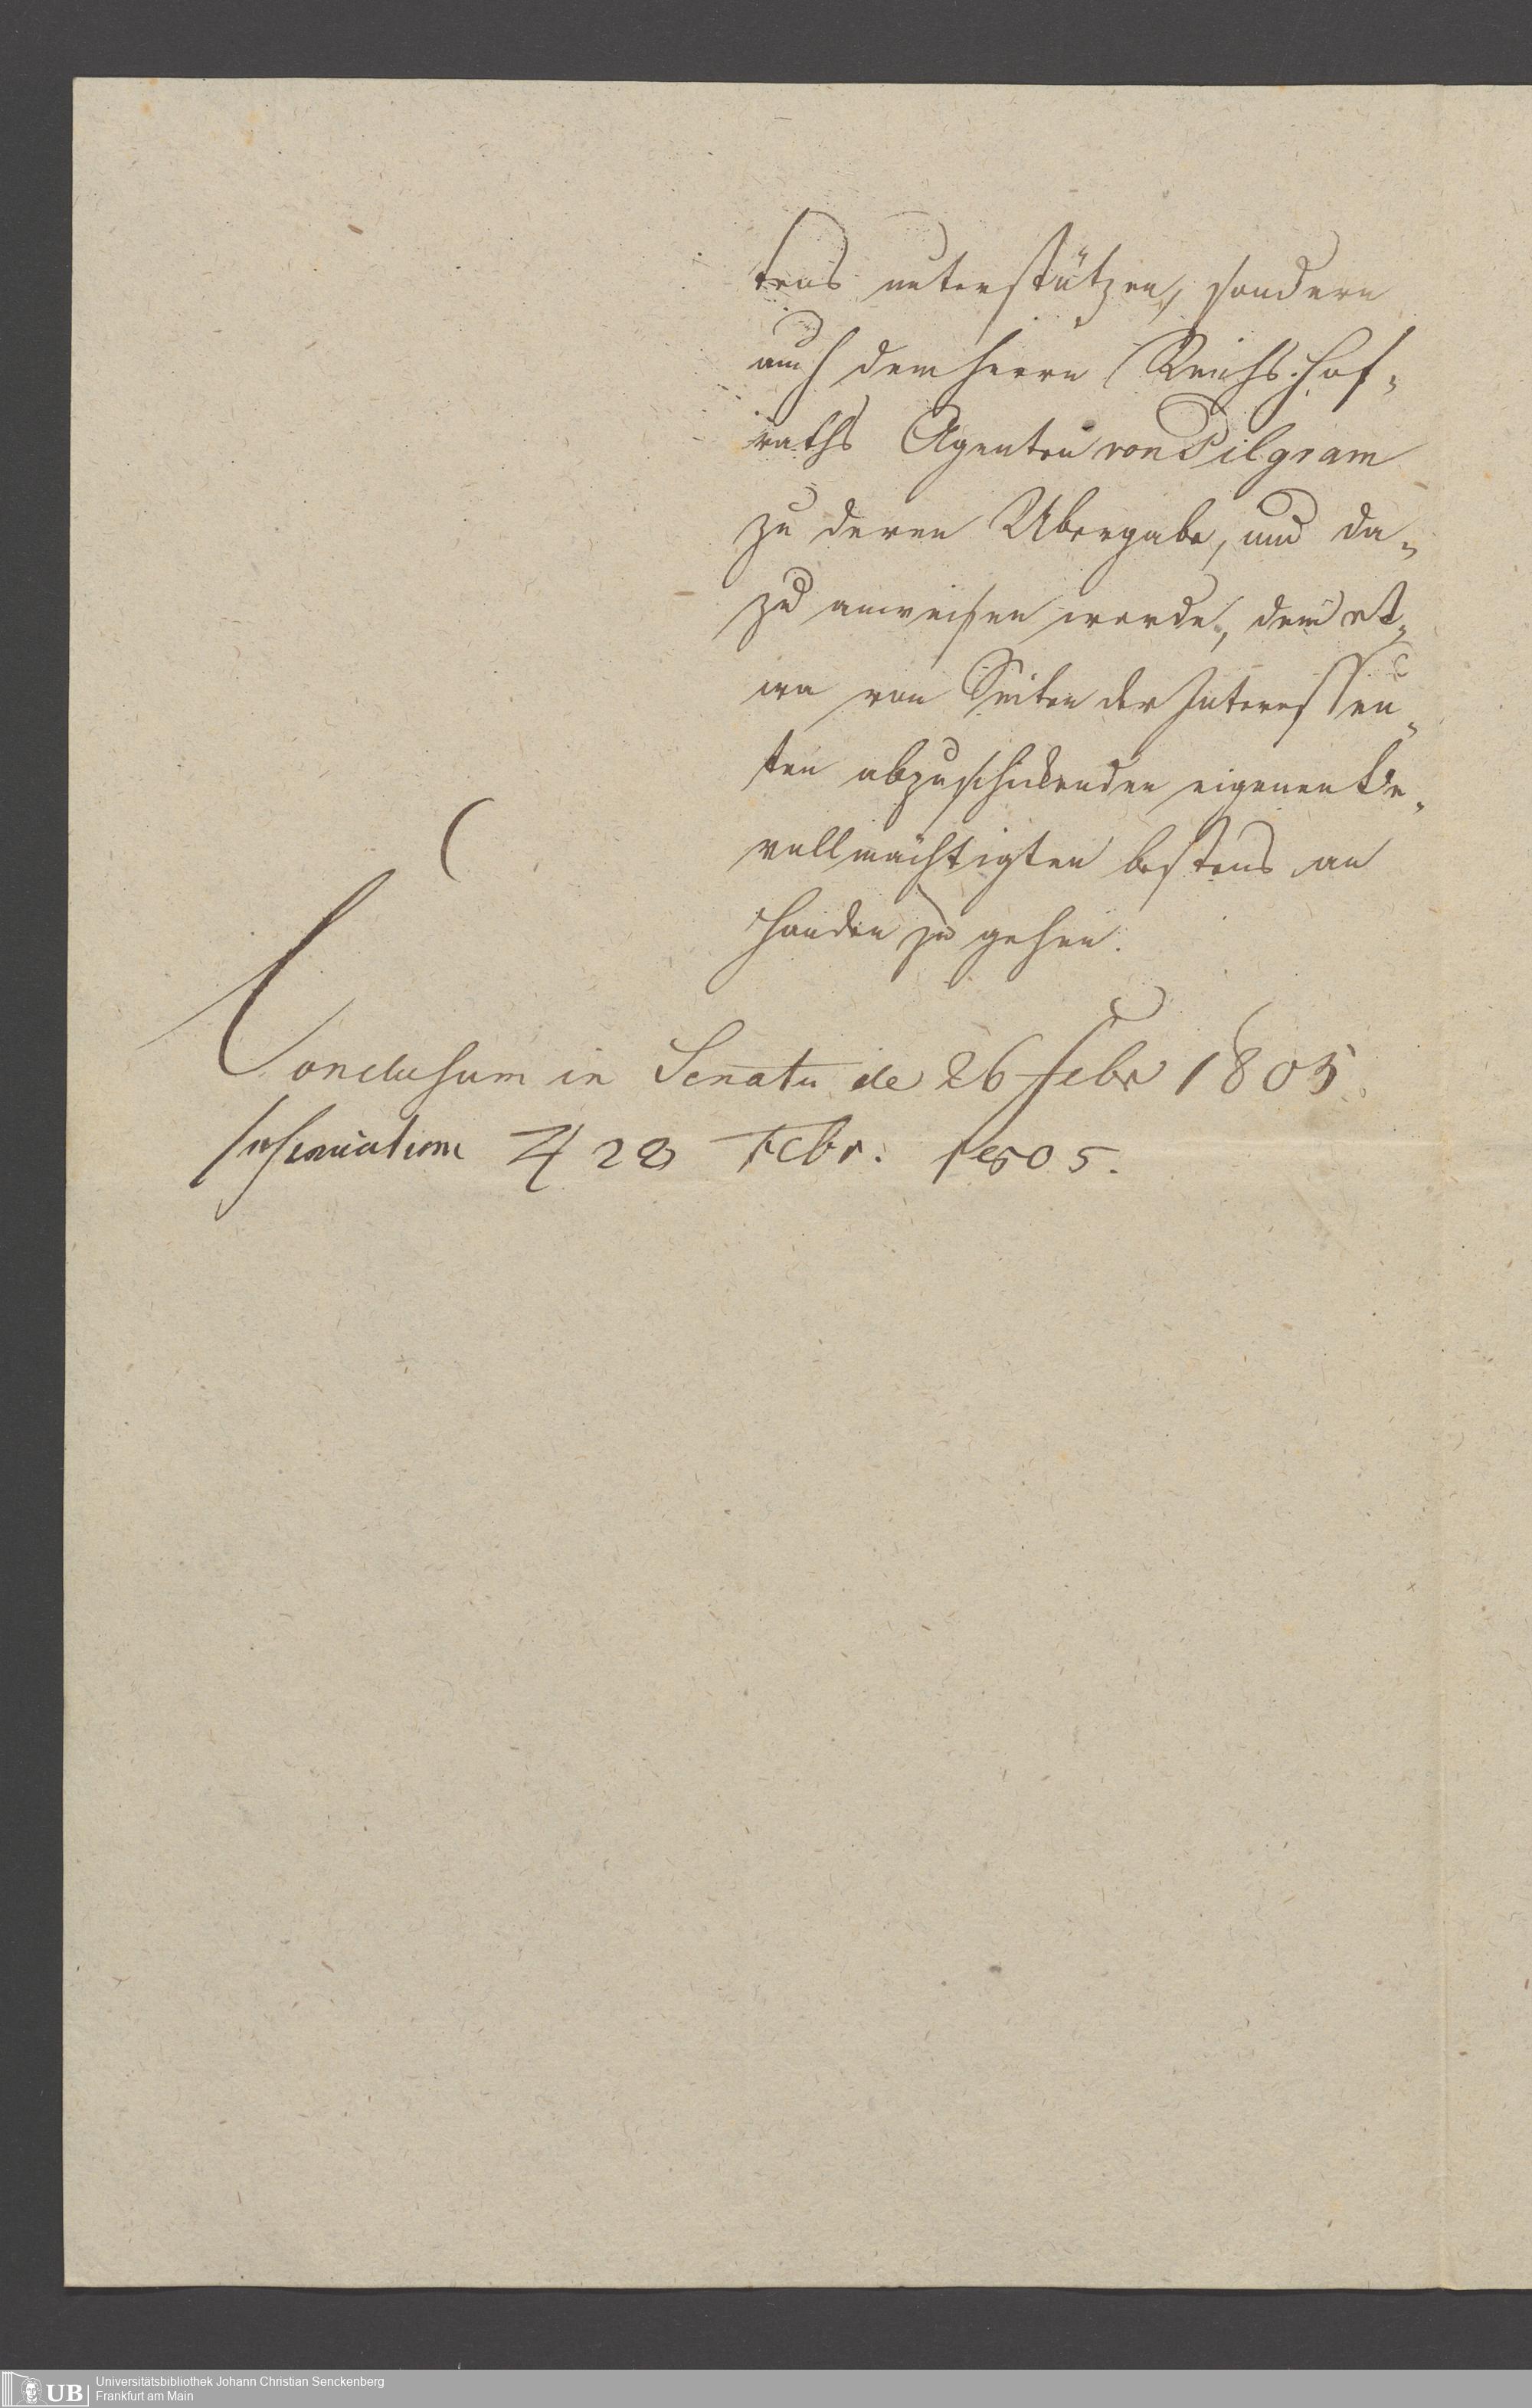 tens unterstützen, sondern
auch dem Herrn Reichs-Hof-
raths Agenten von Pilgram
zu deren Übergabe, und da-
zu anweisen werde, dem et-
wa von Seiten der Interessen-
ten abzuschickenden eigenen Be-
vollmächtigten bestens an
Handen zu gehen.
Conclusum in Senatu de 26 Febr 1805.
28 Febr. 1805.
UB
Universitätsbibliothek Johann Christian Senckenberg
Frankfurt am Main